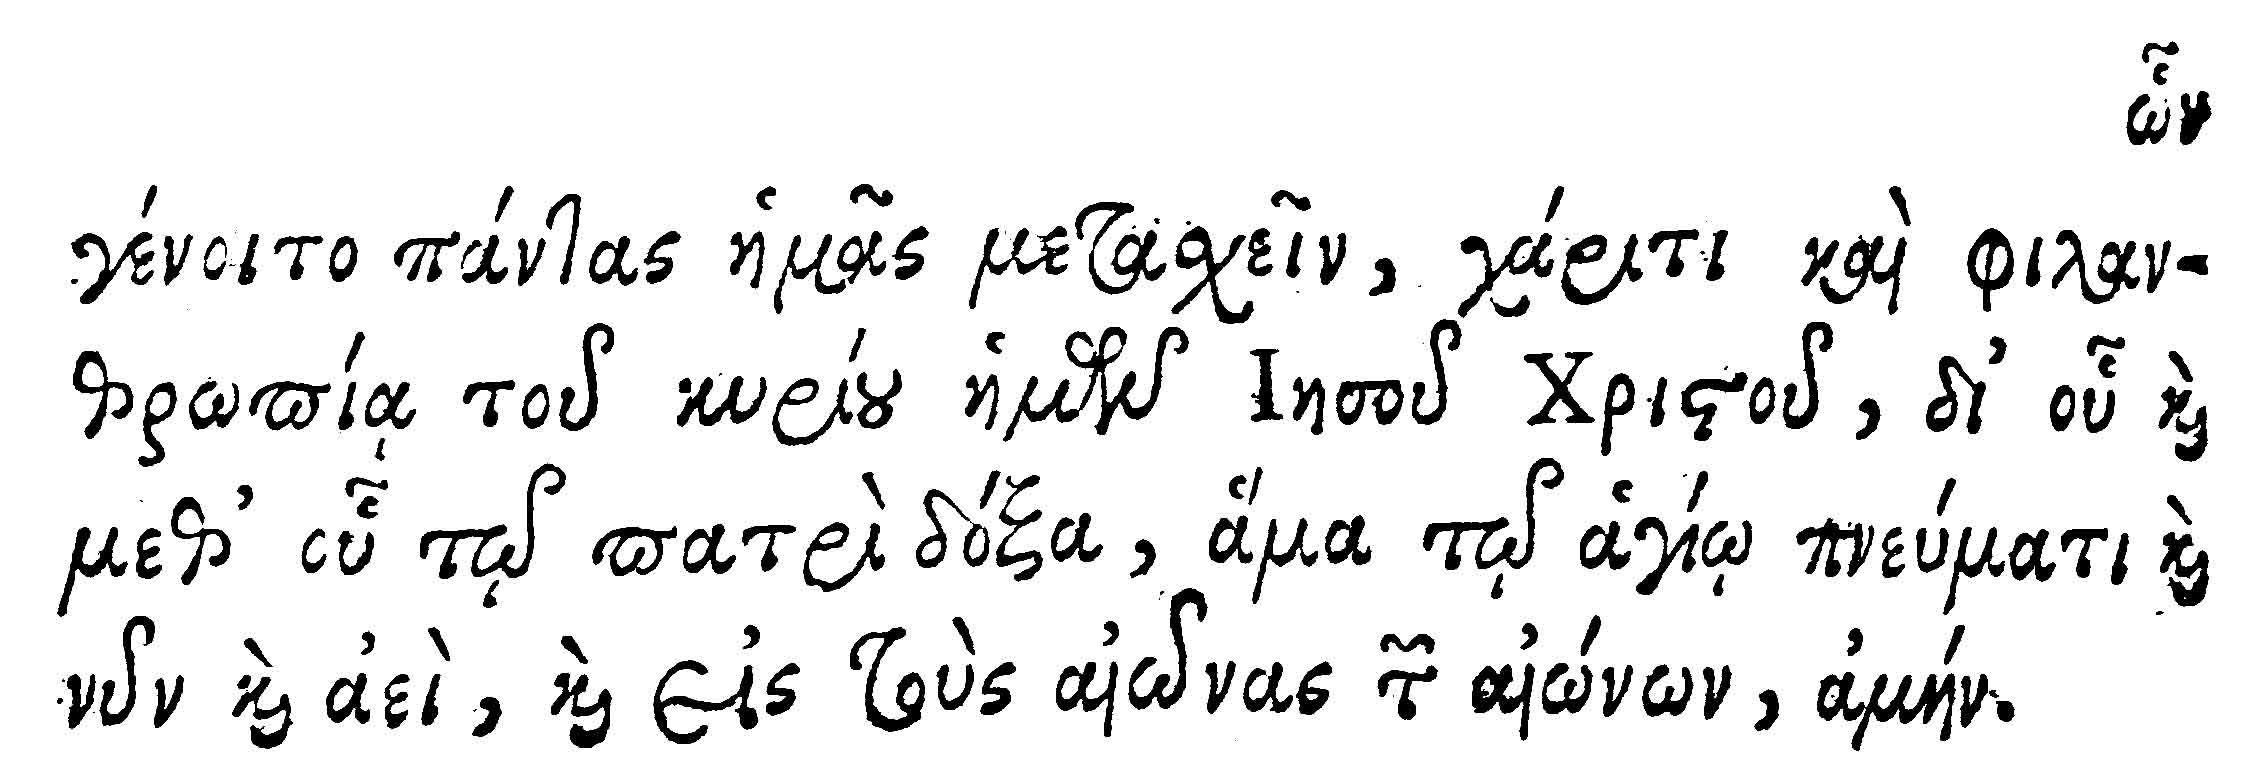 ὧν
γένοιτο πάντας ἡμᾶς μετασχεῖν, χάριτι καὶ φιλαν-
θρωπίᾳ τοῦ κυρίου ἡμῶν Ιησοῦ Χριστοῦ, δι’ οὗ καὶ
μεθ’ οὗ τῷ πατρὶ δόξα, ἅμα τῷ ἁγίῳ πνεύματι καὶ
νῦν καὶ ἀεὶ, καὶ εἰς τοὺς αἰῶνας τῶν αἰώνων, ἀμήν.